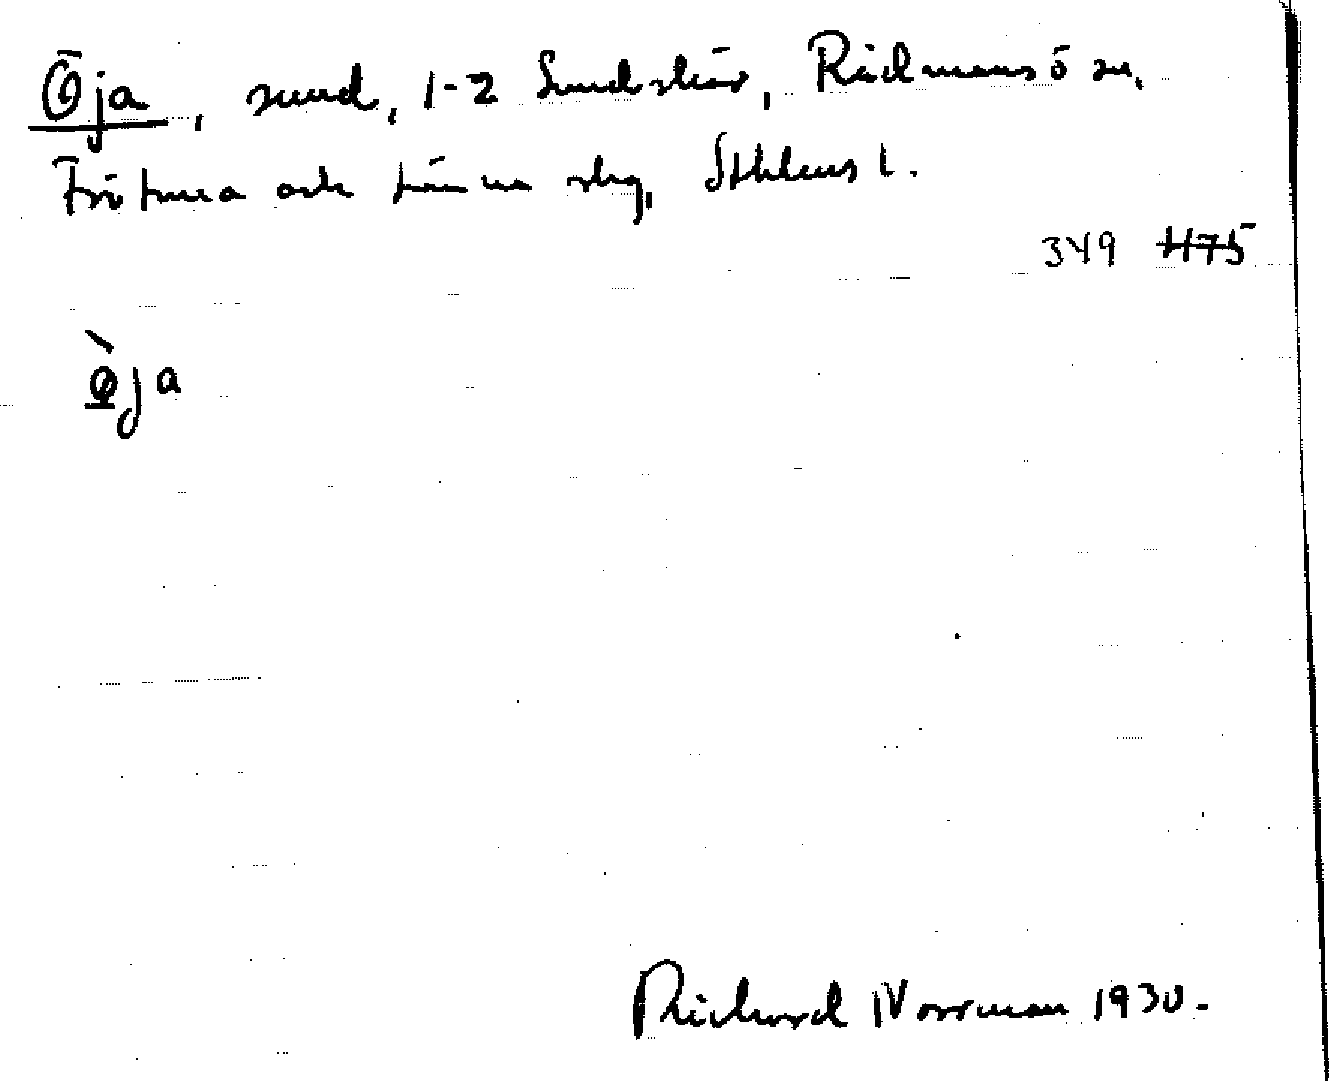 Öja, sund, 1-2 Sundskär, Rådmansö sn,
Frötuna och Länna skg, Sthlms l.
349 H75
Ö̀ja
Richard Norrman 1930.